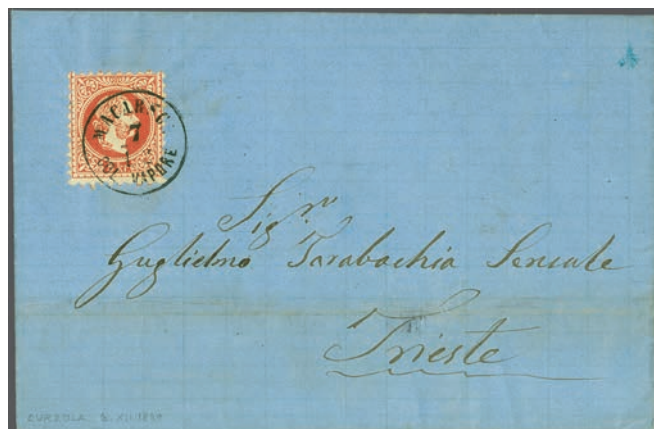 MACARSC
7
COL VAPORE
Sig.r
Guglielmo Tarabochia Sensale
Trieste
CURZOLA 5. XII.